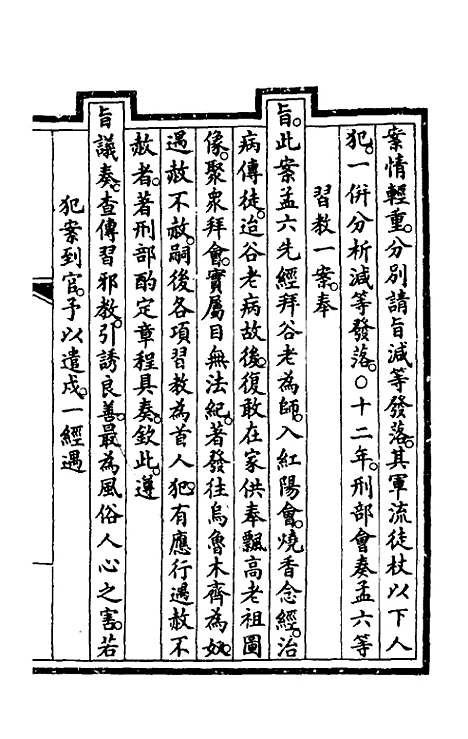 案情輕重。分別請旨減等發落。其軍流徒杖以下人
犯。一併分析減等發落。○十二年。刑部會奏孟六等
習教一案。奉
旨。此案孟六先經拜谷老為師。入紅陽會。燒香念經。治
病傳徒。迨谷老病故後。復敢在家供奉飄高老祖圖
像。聚衆拜會。實屬目無法紀。著發往烏魯木齊為奴。
遇赦不赦。嗣後各項習教為首人犯。有應行遇赦不
赦者。著刑部酌定章程具奏。欽此。遵
旨議奏。查傳習邪教。引誘良善。最為風俗人心之害。若
犯案到官。予以遣戍。一經遇